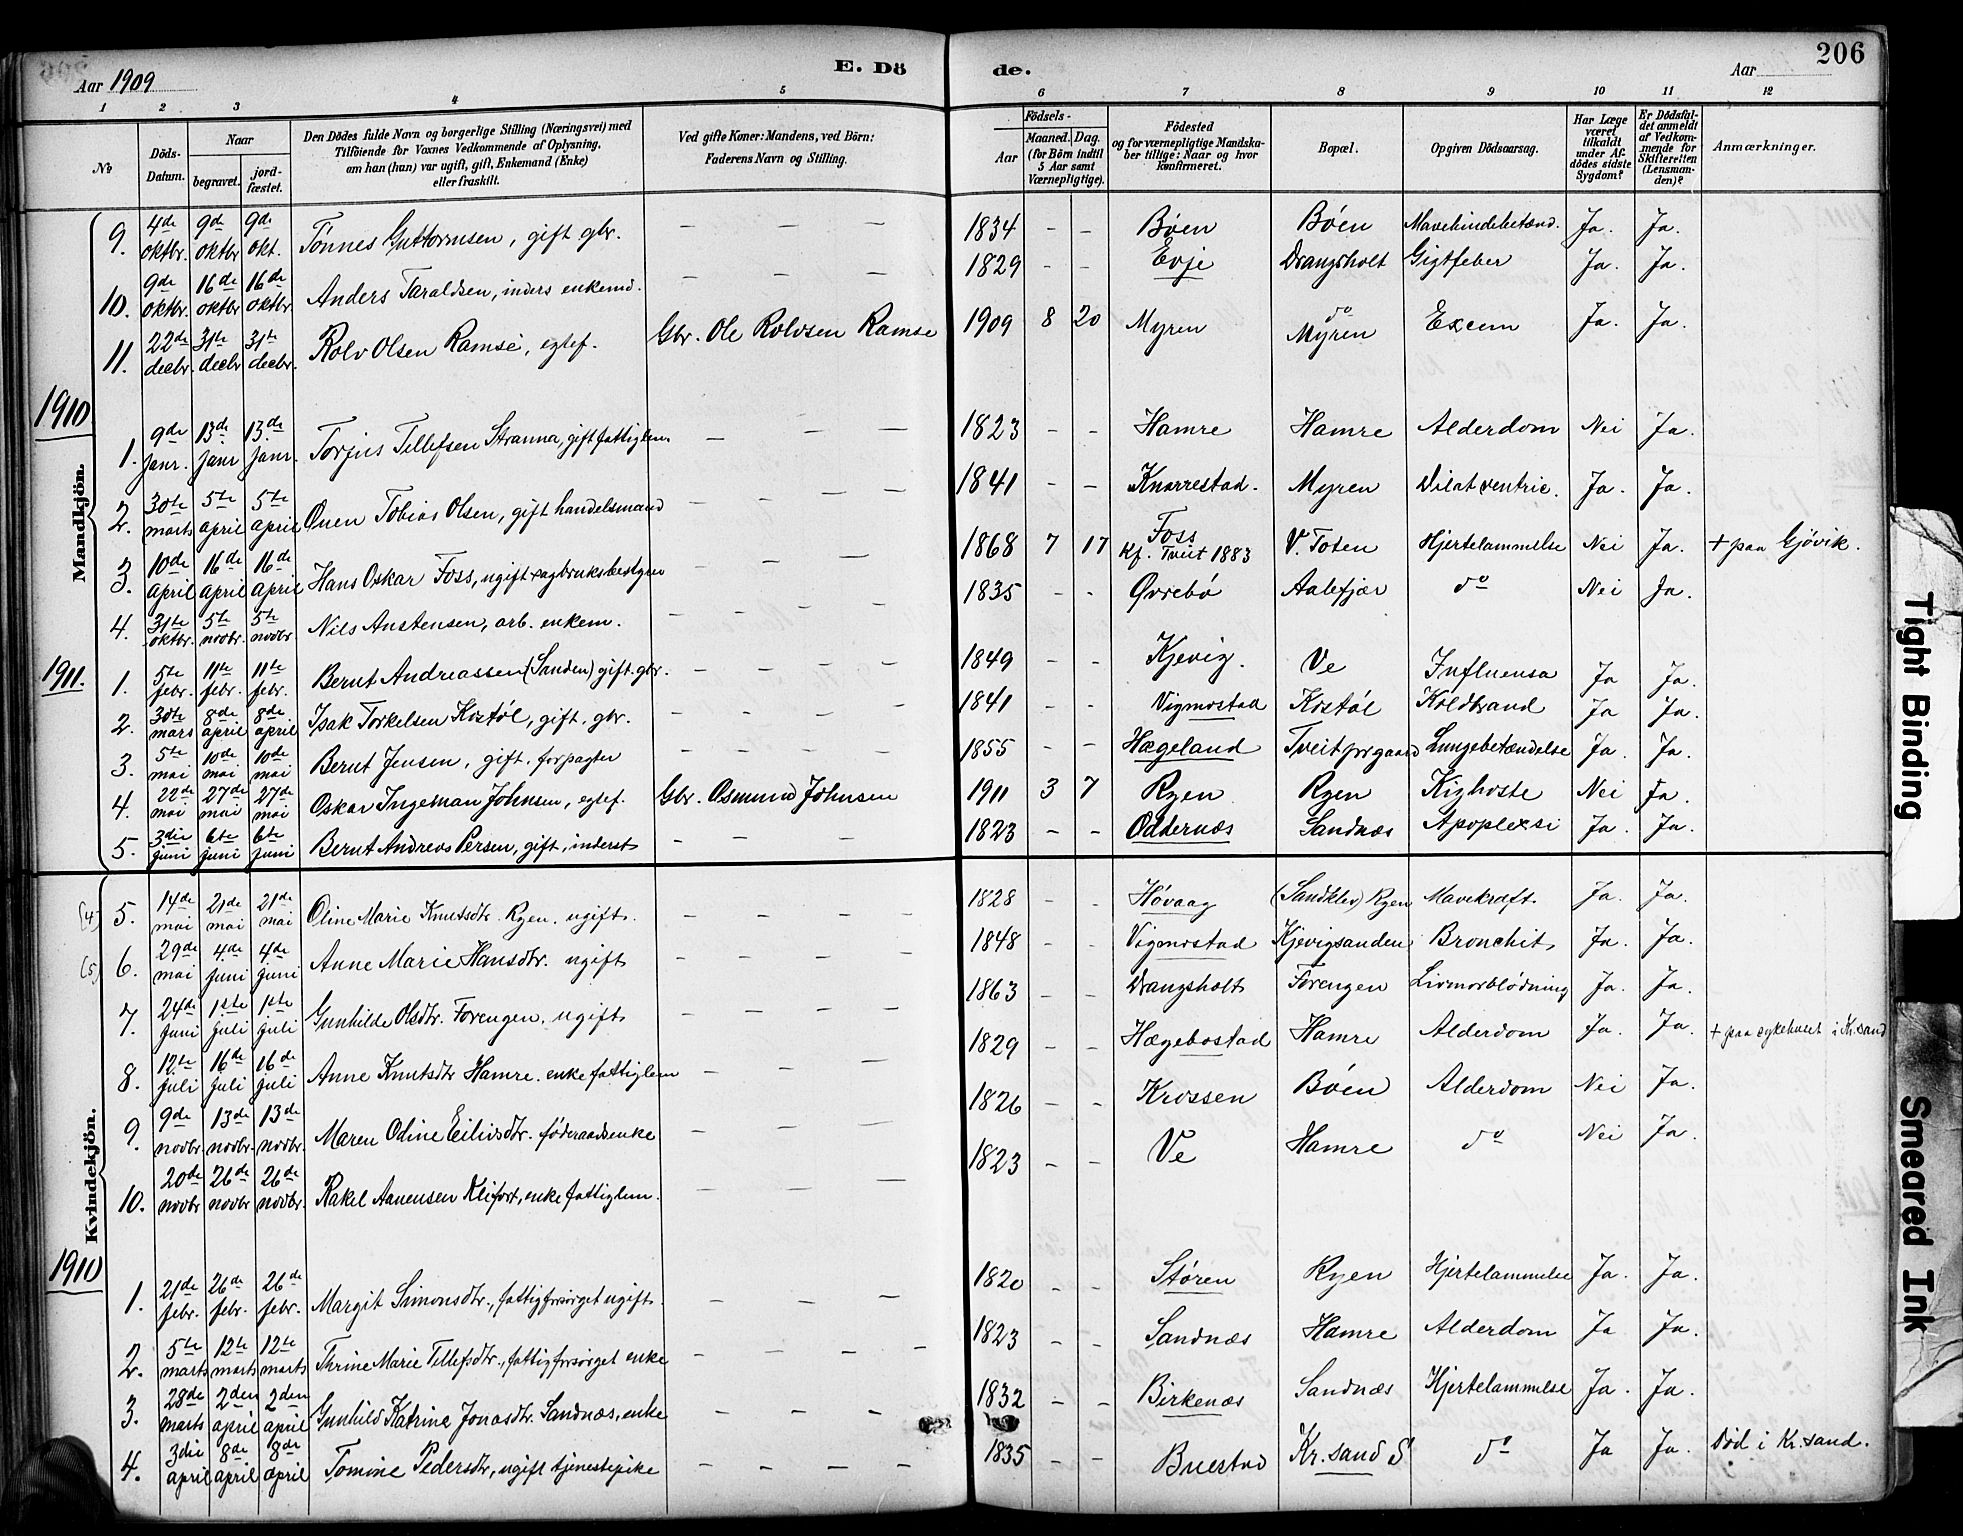 Aar 1909
E. Dö
de.
Aar
206
1 2 3 4 5 6 7 8 9 10 11 12
No
Döds-Datum.
Naar
begravet.
jord-fæstet.
Den Dödes fulde Navn og borgerlige Stilling (Næringsvei) med
Tilföiende for Voxnes Vedkommende af Oplysning,
om han (hun) var ugift, gift, Enkemand (Enke)
eller fraskilt.
Ved gifte Koner: Mandens, ved Börn:
Faderens Navn og Stilling.
Födsels-
Aar
Maaned. Dag.
(for Börn indtil
5 Aar samt
Værnepligtige).
Födested
og for værnepligtige Mandska-
ber tillige: Naar og hvor
konfirmeret.
Bopæl.
Opgiven Dödsaarsag.
Har Læge
været
tilkaldt
under Af-
dödes sidste
Sygdom?
Er Dödsfal-
det anmeldt
af Vedkom-
mende for
Skifteretten
(Lensman-
den)?
Anmærkninger.
Mandkjön.
9. 4de oktbr. 9de oktbr 9de okt. Tønnes Guttormsen, gift gbr. — — — 1834 - - Bøen Bøen Mavehindebetænd. Ja. Ja.
10. 9de oktbr. 16de oktbr 16de oktbr. Anders Taraldsen, inders enkemd. — — — 1829 - - Evje Drangsholt Gigtfeber Ja. Ja.
11. 22de decbr. 31te decbr 31te decbr. Rolv Olsen Ramse, egtef. Gbr. Ole Rolvsen Ramse 1909 8 20 Myren do Myren Excem Ja. Ja.
1910
1. 9de janr. 13de janr 13de janr. Torjus Tellefsen Stranna, gift fattiglem. — — — 1823 - - Hamre Hamre Alderdom Nei Ja.
2. 30te marts 5te april 5te april Ouen Tobias Olsen, gift handelsmand — — — 1841 - - Knarrestad. Myren Dilat ventric. Ja. Ja.
3. 10de april 16de april 16de april Hans Oskar Foss, ugift sagbruksbestyrer — — — 1868 7 17 Foss Kf. Tveit 1883 V. Toten Hjertelammelse Nei Ja. + paa Gjøvik.
4. 31te oktbr. 5te novbr. 5te novbr. Nils Austensen, arb. enkem. — — — 1835 - - Øvrebø Aalefjær do Nei Ja.
1911.
1. 5te febr. 11te febr. 11te febr. Bernt Andreassen (Sanden) gift. gbr. — — — 1849 - - Kjevig. Ve Influensa Ja Ja.
2. 30te mars 8de april 8de april Isak Torkelsen Kostøl, gift, gbr. — — — 1841 - - Vigmostad Kostøl Koldbrand Ja Ja.
3. 5te mai 10de mai 10de mai Bernt Jensen, gift, forpagter — — — 1855 - - Hægeland Tveit prgaard Lungebetændelse Ja. Ja.
4. 22de mai 27de mai 27de mai Oskar Ingeman Johnsen, egtef. Gbr. Osmund Johnsen 1911 3 7 Ryen Ryen Kighoste Nei Ja.
5. 3die juni 6te juni 6te juni Bernt Andreas Persen, gift, inderst — — — 1823 - - Oddernæs Sandnæs Apoplexi Ja. Ja.
Kvindekjön.
(4) 5. 14de mai 21de mai 21de mai Oline Marie Knutsdtr. Ryen. ugift. — — — 1828 - - Høvaag (Sandklev) Ryen Mavekræft. Ja. Ja.
(5) 6. 29de mai 4de juni 4de juni Anne Marie Hansdtr. ugift — — — 1848 - - Vigmostad Kjevigsanden Bronchit Ja. Ja.
7. 24de juni 1ste juli 1ste juli Gunhilde Olsdtr. Forengen. ugift — — — 1863 - - Drangsholt Forengen Livmorblødning Ja. Ja.
8. 12te juli 16de juli 16de juli Anne Knutsdtr Hamre. enke fattiglem — — — 1829 - - Hægebostad Hamre Alderdom Ja. Ja. + paa sykehuset i Kr.sand
9. 9de novbr 13de novbr. 13de novbr. Maren Odine Eilivsdtr. føderaadsenke — — — 1826 - - Krossen Bøen Alderdom Nei Ja.
10. 20de novbr 26de novbr 26de novbr. Rakel Aanensen Kleifort, enke fattiglem. — — — 1823 - - Ve Hamre do Nei Ja.
1910
1. 21de febr. 26de febr. 26de febr. Margit Simonsdtr., fattigforsørget ugift. — — — 1820 - - Støren Ryen Hjertelammelse Ja. Ja.
2. 5te marts 12te marts 12te marts Thrine Marie Tellefsdtr., fattigforsørget enke — — — 1823 - - Sandnæs Hamre Alderdom Ja Ja.
3. 28de marts 2den april 2den april Gunhild Katrine Jonasdtr. Sandnæs, enke — — — 1832 - - Birkenæs Sandnæs Hjertelammelse Ja. Ja.
4. 3die april 8de april 8de april Tomine Pedersdtr, ugift tjenestepike — — — 1835 - - Buestad Kr.sand S do Ja Ja. Død i Kr.sand.
Tight Binding
Smeared Ink